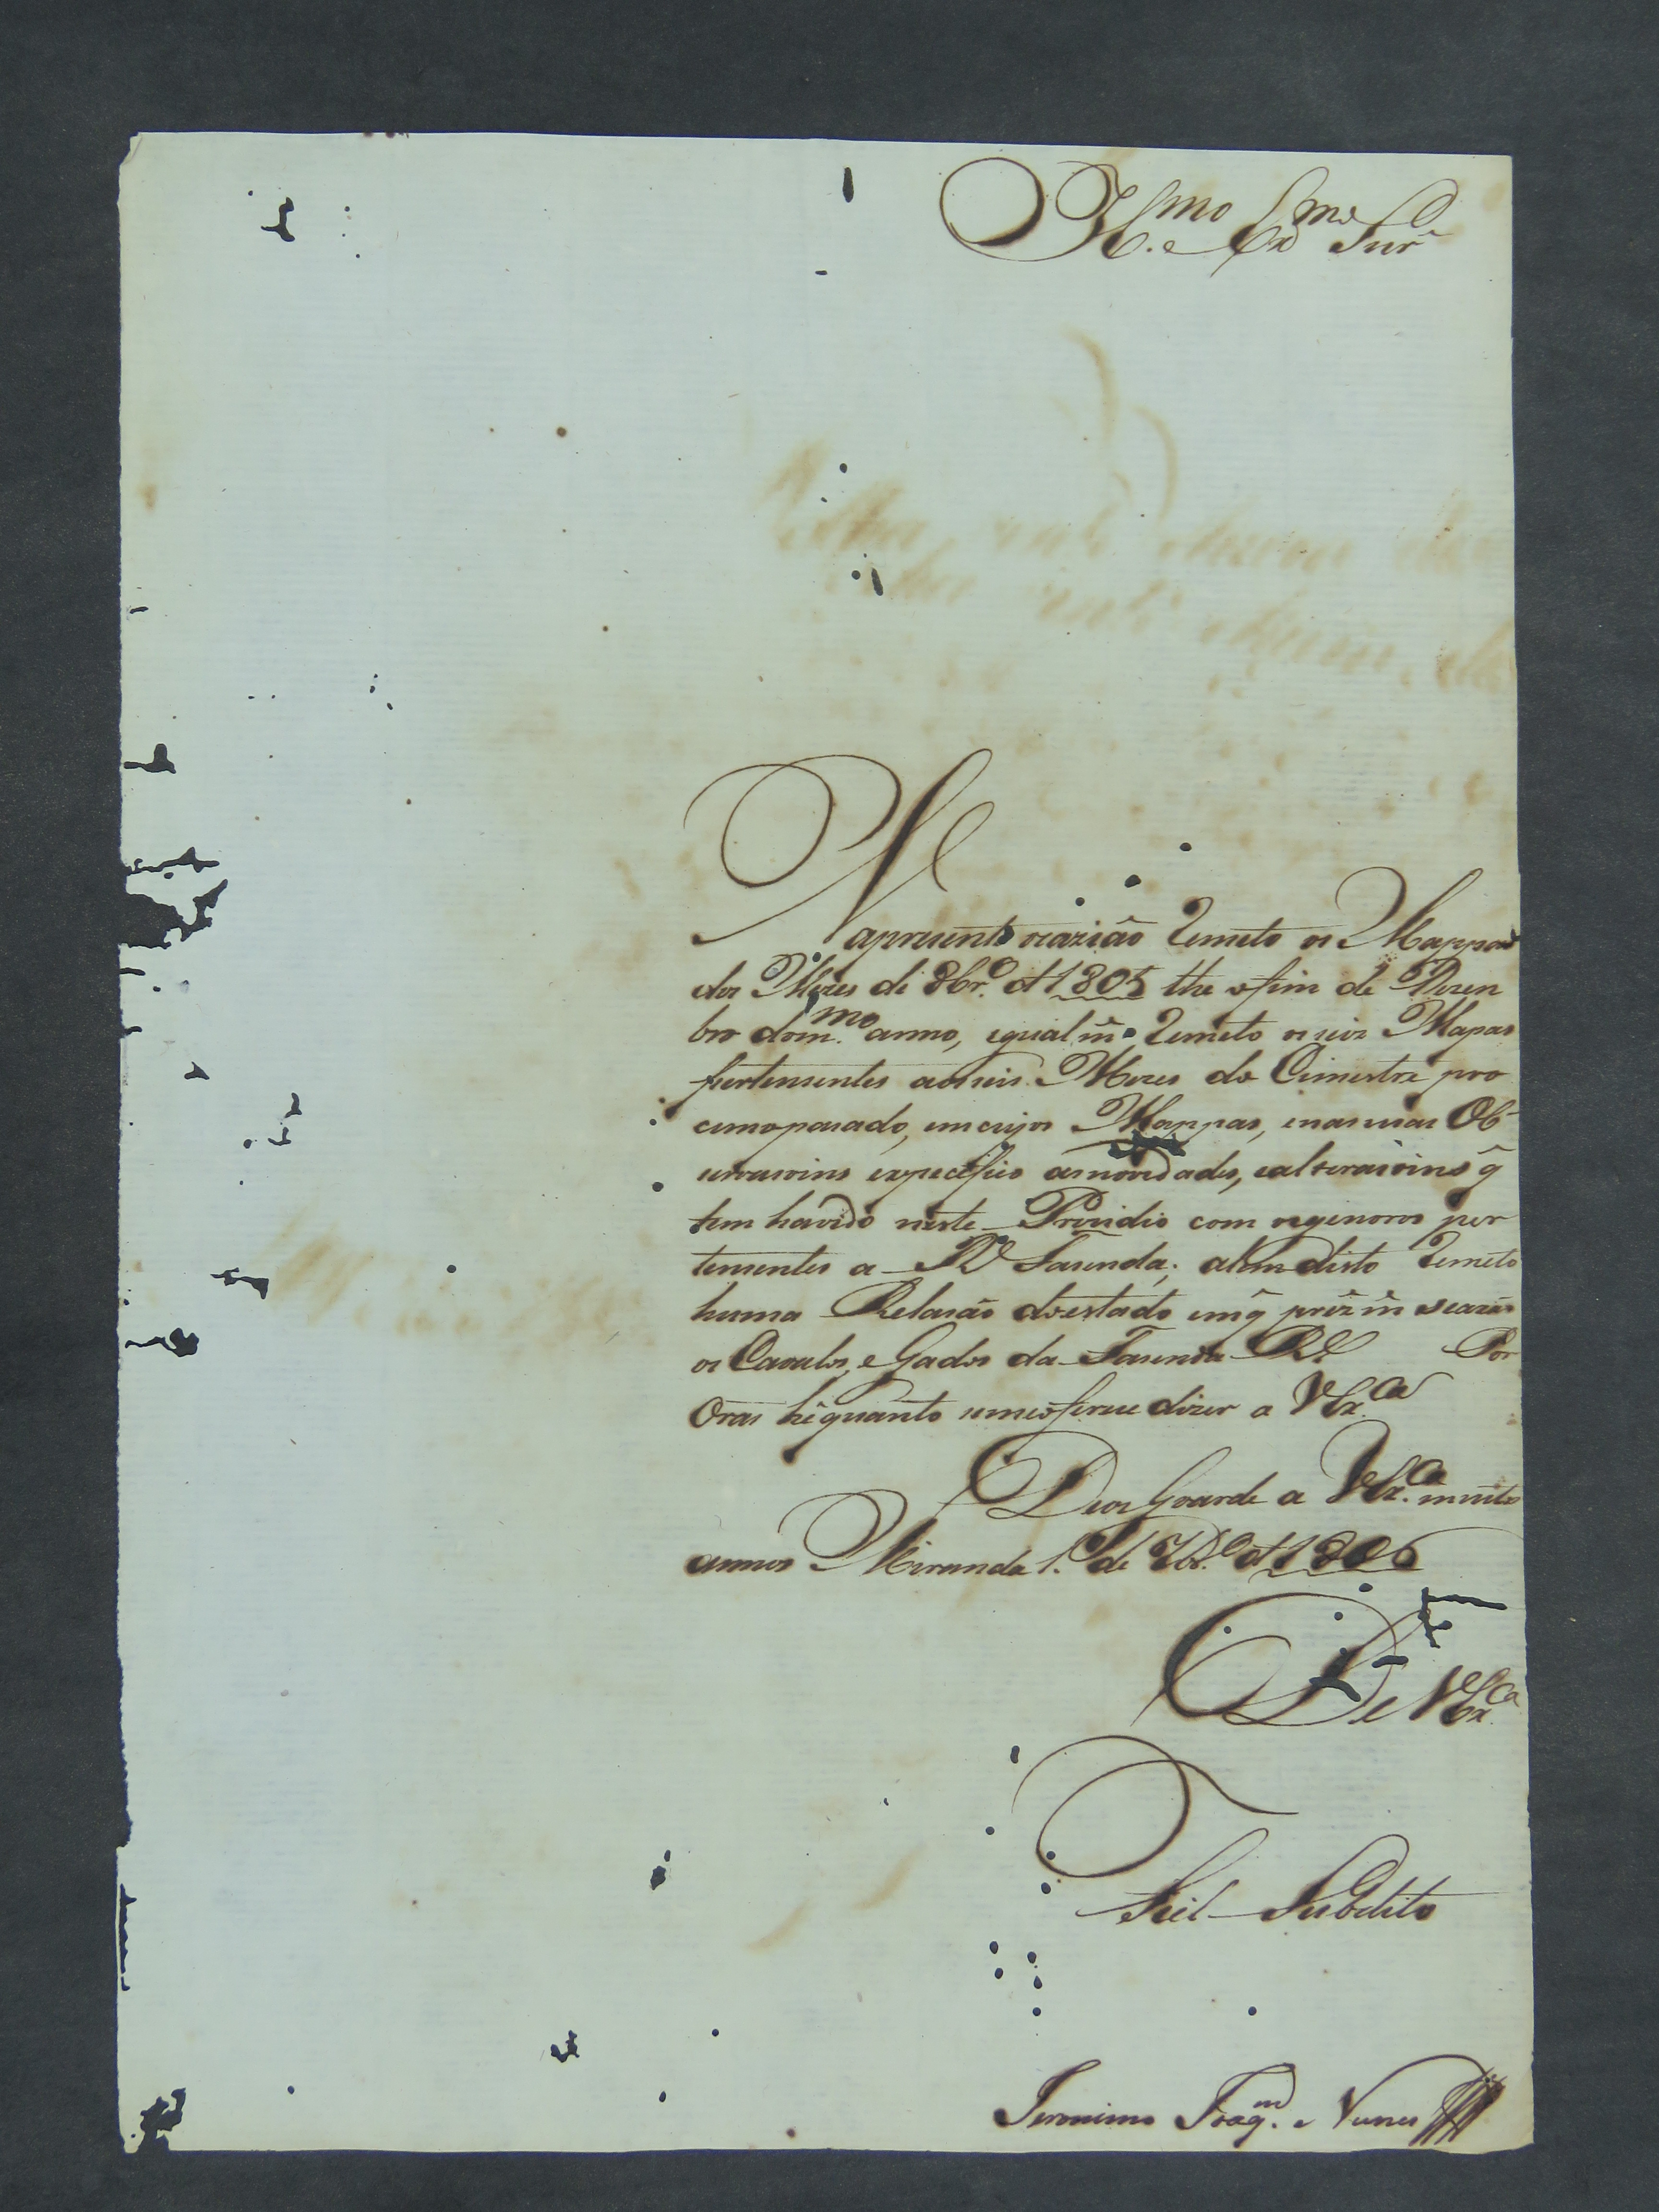 Ill.mo e Ex.mo Snr.
N apresente ocazião Remeto os Mappas
dos Mezes de 8br.o d 1805 the o fim de Dezen
bro dom.mo anno, egualm.e Remeto os seis Mapas
pertensentes aos seis Mezes do Cimestre pro
cimo pasado, em cujos Mappas, e nas suas Ob-
servasoins expecefico as novidades, e alterasoins q̃
tem havido neste Prezidio com os generos per
tensentes a Rl Fasenda; alem disto Remeto
huma Relasão do estado em q̃ prezm.e se axão
os Cavalos, e Gados da Fasenda Rl Por
Oras hé quanto se me oferese dizer a VEx.ca
Deos Goarde a VEx.ca muitos
annos Miranda 1.o de d 1806
De VEx.ca
Fiel Subdito
Jeronimo Joaq.m e Nunes